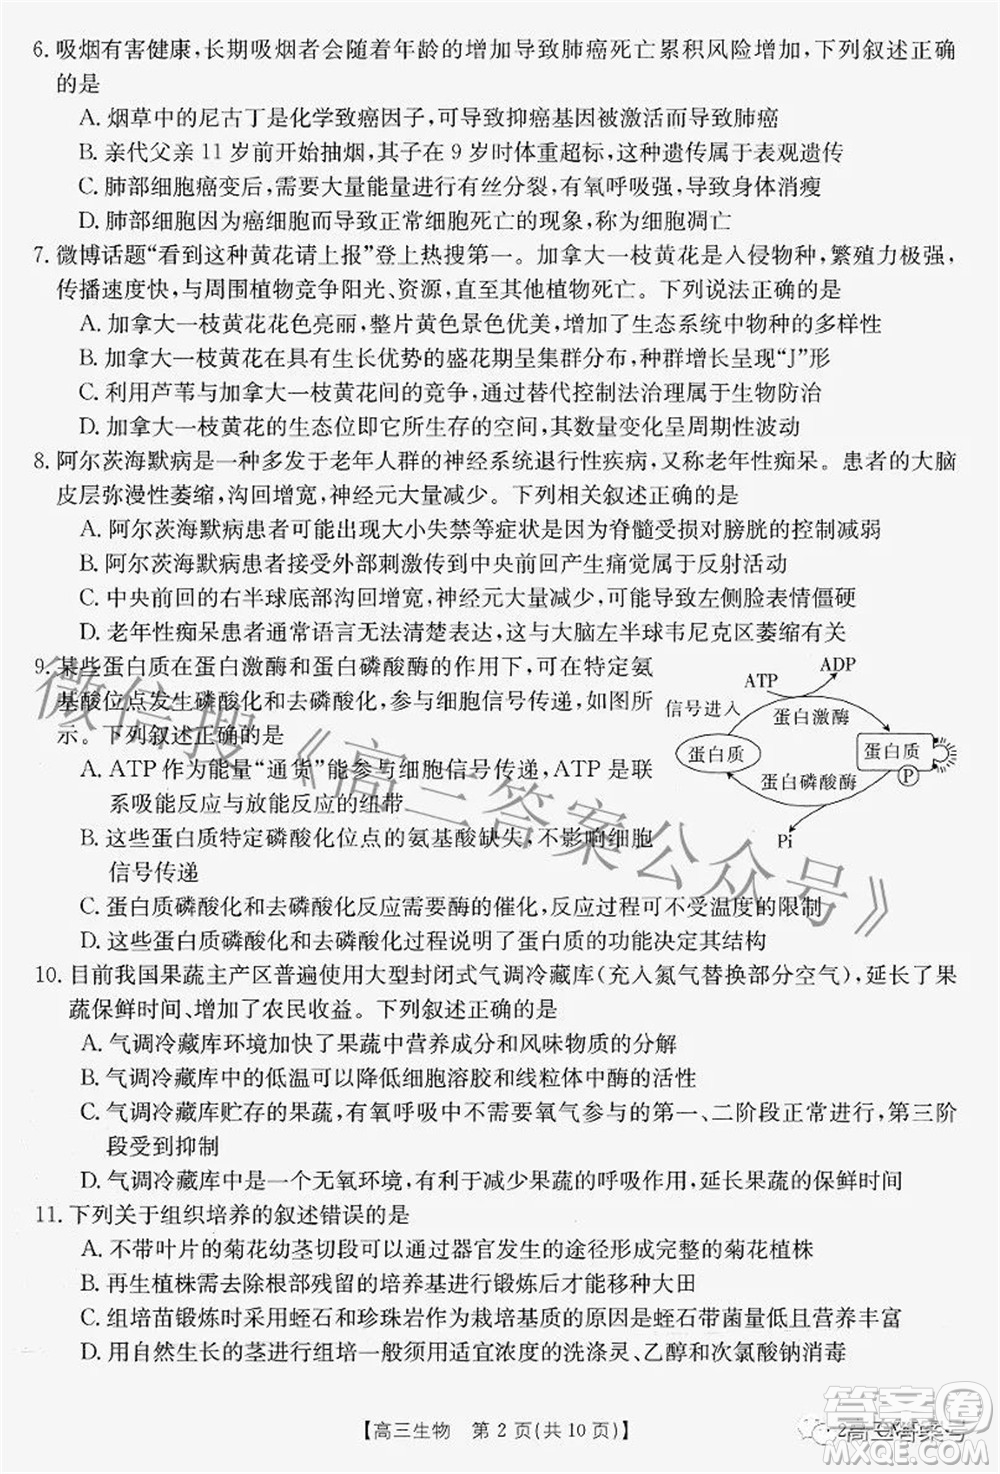 6. 吸烟有害健康,长期吸烟者会随着年龄的增加导致肺癌死亡累积风险增加,下列叙述正确
的是
A. 烟草中的尼古丁是化学致癌因子,可导致抑癌基因被激活而导致肺癌
B. 亲代父亲 11 岁前开始抽烟,其子在 9 岁时体重超标,这种遗传属于表观遗传
C. 肺部细胞癌变后,需大量能量进行有丝分裂,有氧呼吸强,导致身体消瘦
D. 肺部细胞因为癌细胞的存在而导致正常细胞死亡的现象,称为细胞凋亡
7. 微博话题“看到这种黄花请上报”登上热搜第一。加拿大一枝黄花是入侵物种,繁殖力极强,
传播速度快,与周围植物竞争阳光、资源,直至其他植物死亡。下列说法正确的是
A. 加拿大一枝黄花花色亮丽,整片黄色景色优美,增加了生态系统中物种的多样性
B. 加拿大一枝黄花在具有生长优势的盛花期呈集群分布,种群增长呈“J”形
C. 利用芦苇与加拿大一枝黄花间的竞争,通过替代控制法治理属于生物防治
D. 加拿大一枝黄花的生态位即其生存的空间,其数量变化呈周期性波动
8. 阿尔茨海默病是一种多发于老年人群的神经系统退行性疾病,又称老年性痴呆。患者的大脑
皮层弥漫性萎缩,沟回增宽,神经元大量减少。下列相关叙述正确的是
A. 阿尔茨海默病患者可能出现大小失禁等症状是因为脊髓受损对膀胱的控制减弱
B. 阿尔茨海默病患者的针刺激传到中央前回产生痛觉属于反射活动
C. 中央前回的右半球底部沟回增宽,神经元大量减少,可能导致左侧脸表情僵硬
D. 老年性痴呆患者通常语言无法清楚表达,与大脑左半球韦尼克区萎缩有关
9. 某些蛋白质在蛋白激酶和蛋白磷酸酶的作用下,可在特定氨
基酸位点发生磷酸化和去磷酸化,参与细胞信号传递,如图所
示。下列叙述正确的是
A. ATP 作为能量“通货”能参与细胞信号传递,ATP 是联
系吸能反应与放能反应的纽带
B. 这些蛋白质特定磷酸化位点的氨基酸缺失,不影响细胞
信号传递
C. 蛋白质磷酸化和去磷酸化反应需要酶的催化,但可不受温度的限制
D. 这些蛋白质磷酸化和去磷酸化过程说明了蛋白质的功能决定其结构
ADP
ATP
信号进入
蛋白激酶
蛋白质
蛋白质
P
蛋白磷酸酶
Pi
10. 目前我国果蔬主产区普遍使用大型封闭式气调冷藏库(充入氮气替换部分空气),延长了果
蔬保鲜时间、增加了农民收益。下列叙述正确的是
A. 气调冷藏库环境加快了果蔬中营养成分和风味物质的分解
B. 气调冷藏库中的低温可以降低细胞溶胶和线粒体中酶的活性
C. 气调冷藏库贮存的果蔬,有氧呼吸中不需要氧气参与的第一、二阶段正常进行,第三阶
段受到抑制
D. 气调冷藏库中是一个无氧环境,有利于减少果蔬的有机物消耗,延长果蔬的保鲜时间
11. 下列关于组织培养的叙述错误的是
A. 不带叶片的菊花幼茎切段可通过器官发生的途径形成完整的菊花植株
B. 再生植株需去除根部残留的培养基进行锻炼后才能移种大田
C. 组培苗锻炼时采用蛭石和珍珠岩作为栽培基质,是因为蛭石带菌量低但营养丰富
D. 用自然生长的茎进行组培一般用适宜浓度的洗涤灵、乙醇和次氯酸钠消毒
【高三生物 第 2 页(共 10 页)】
微信搜《高三答案公众号》
答案圈